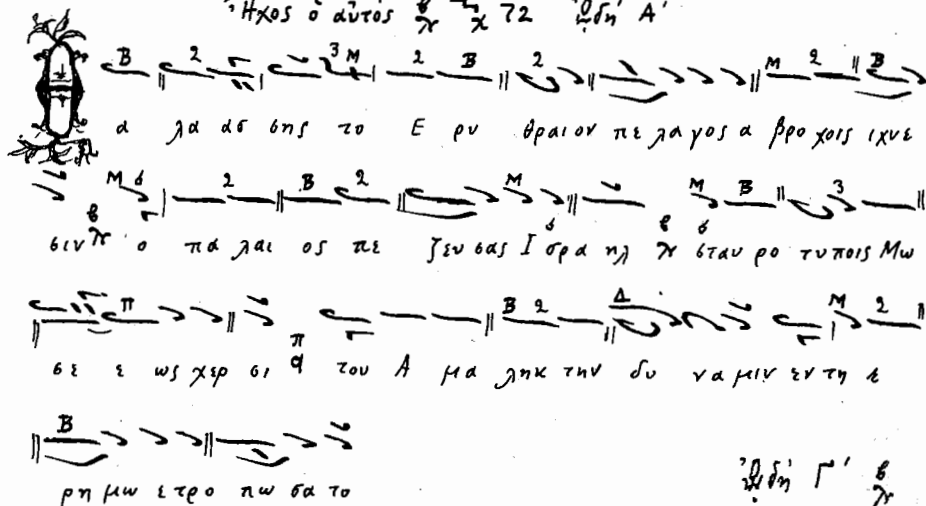 Ἦχος ὁ αὐτός 72 ᾠδή Α'
α λα ασ σης το Ε ρυ θραιον πε λα γος α βρο χοις ιχνε
σιν ο πα λαι ος πε ζευ σας Ι σρα ηλ σταυ ρο τυποις Μω
σε ε ως χερ σι του Α μα ληκ την δυ να μιν εν τη ε
ρη μω ε τρο πω σα το
ᾠδή Γ'